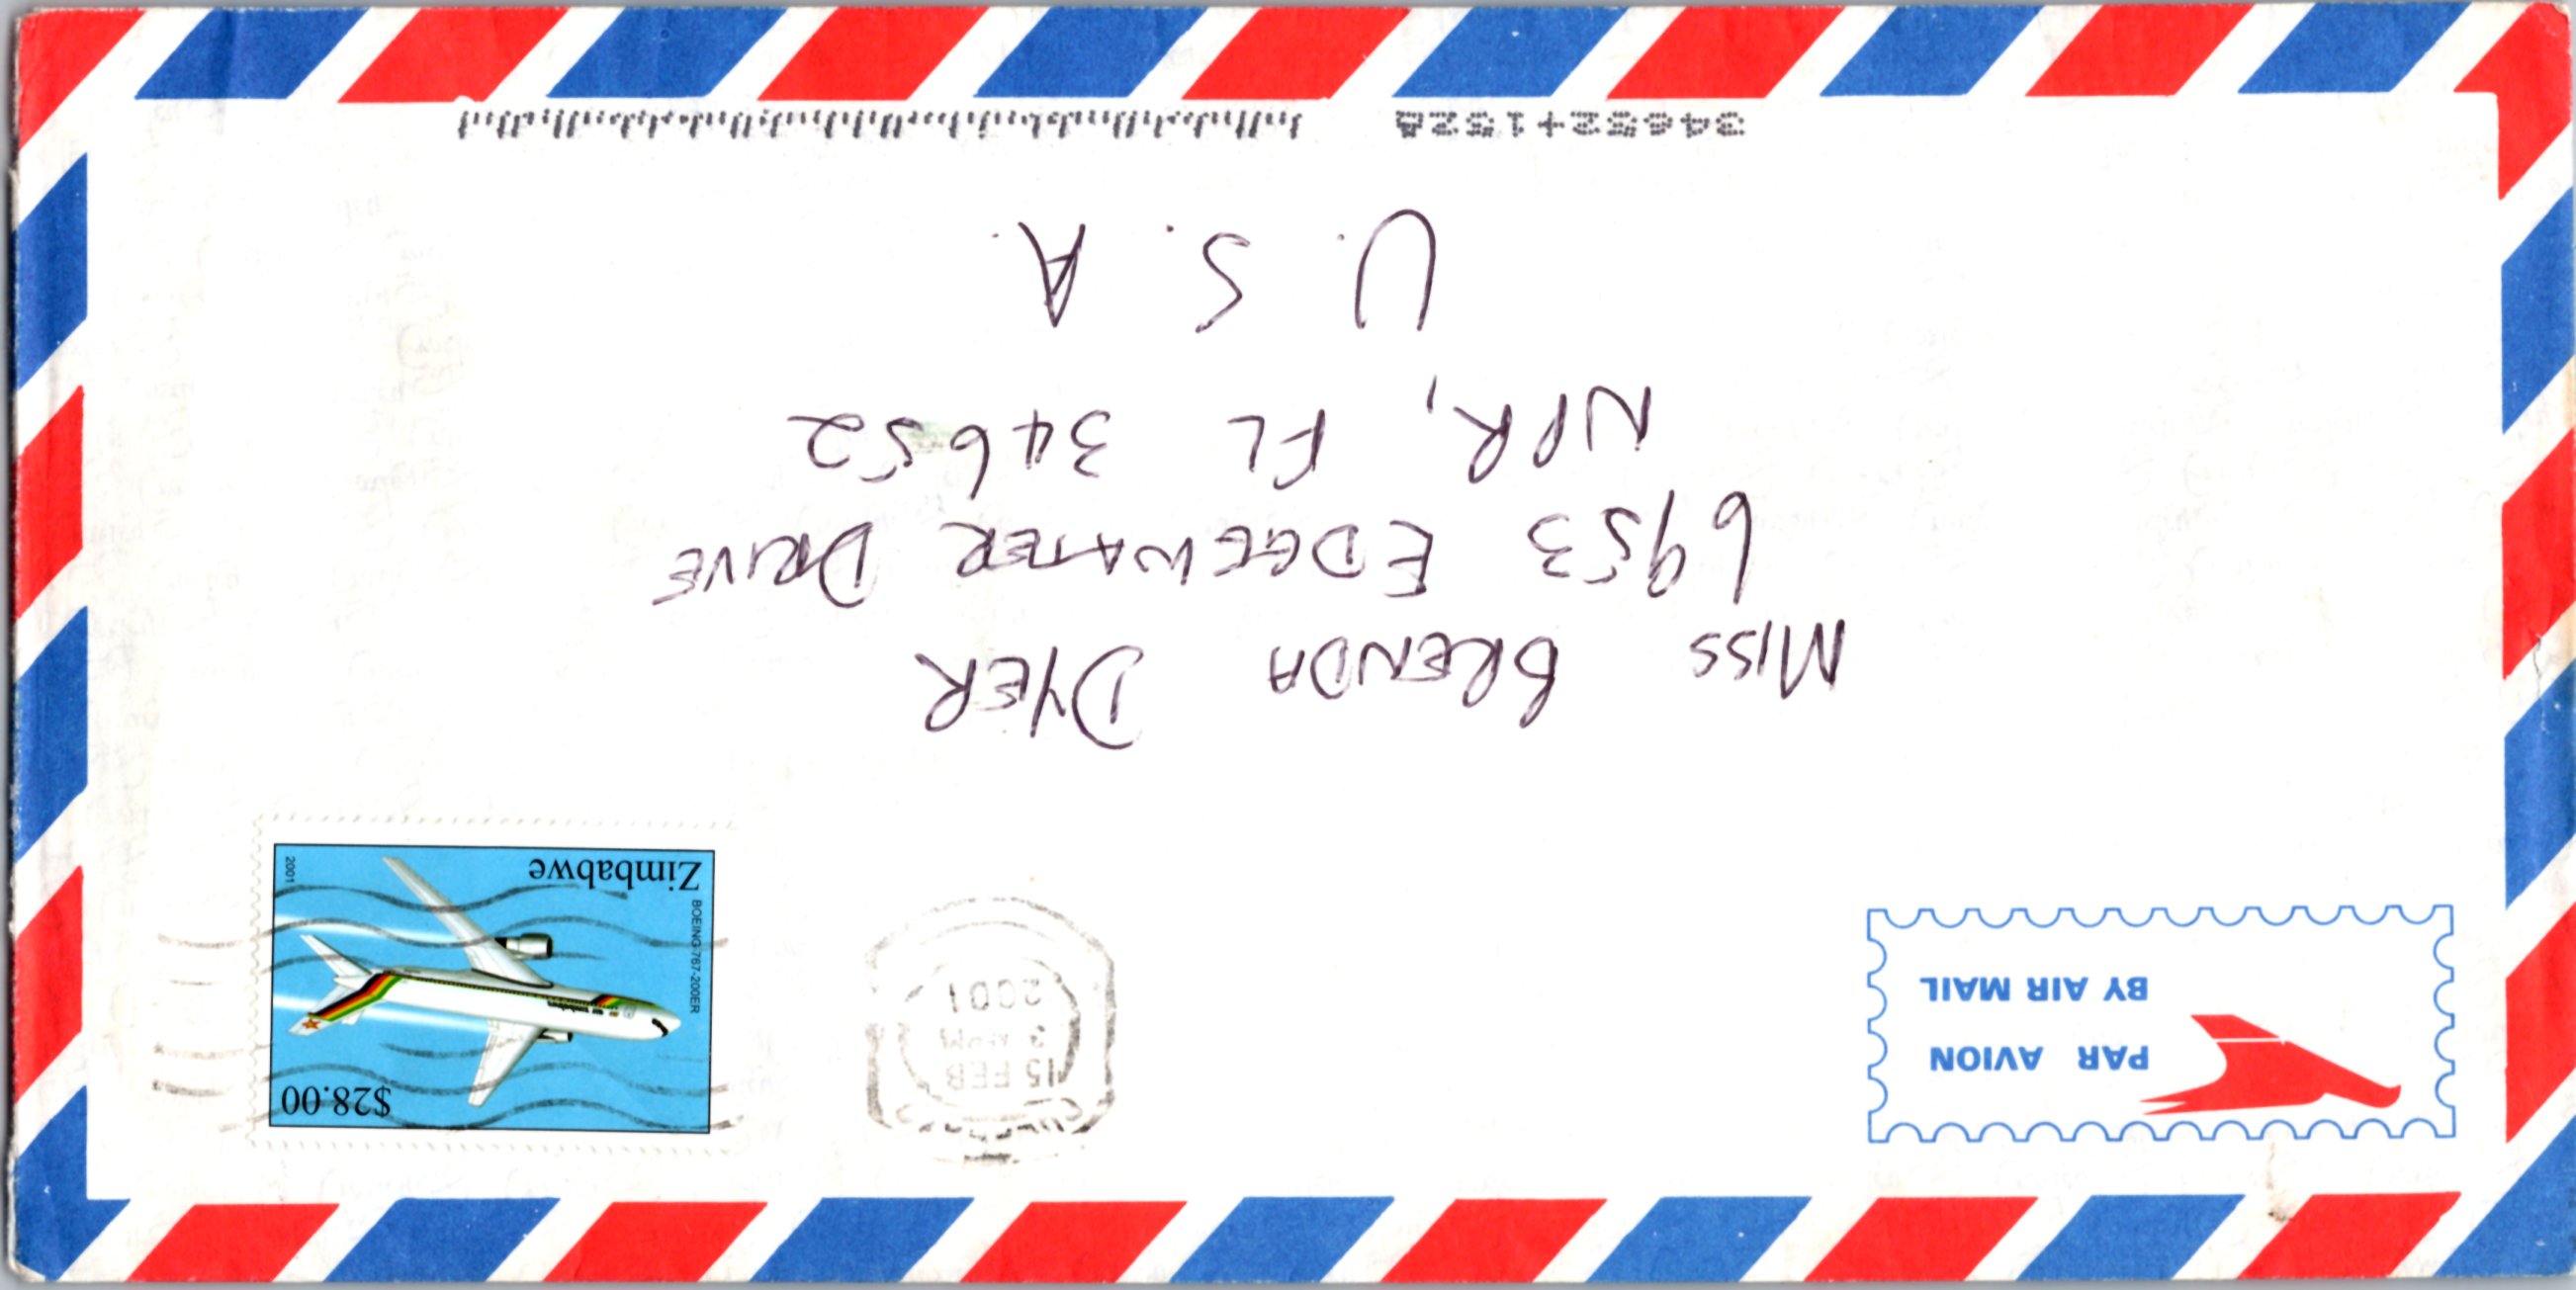 PAR AVION
BY AIR MAIL
15 FEB
2001
$28.00
BOEING 767-200ER
Zimbabwe
2001
MISS BRENDA DYER
6953 EDGEWATER DRIVE
NPR, FL 34652
U. S. A.